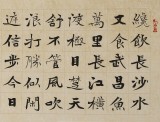 纔飲長沙水
又食武昌魚
萬里長江橫
渡極目楚天
舒不管風吹
浪打勝似閒
庭信步今日